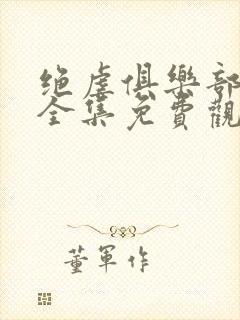 绝虐俱樂部
全集免費觀
董軍作